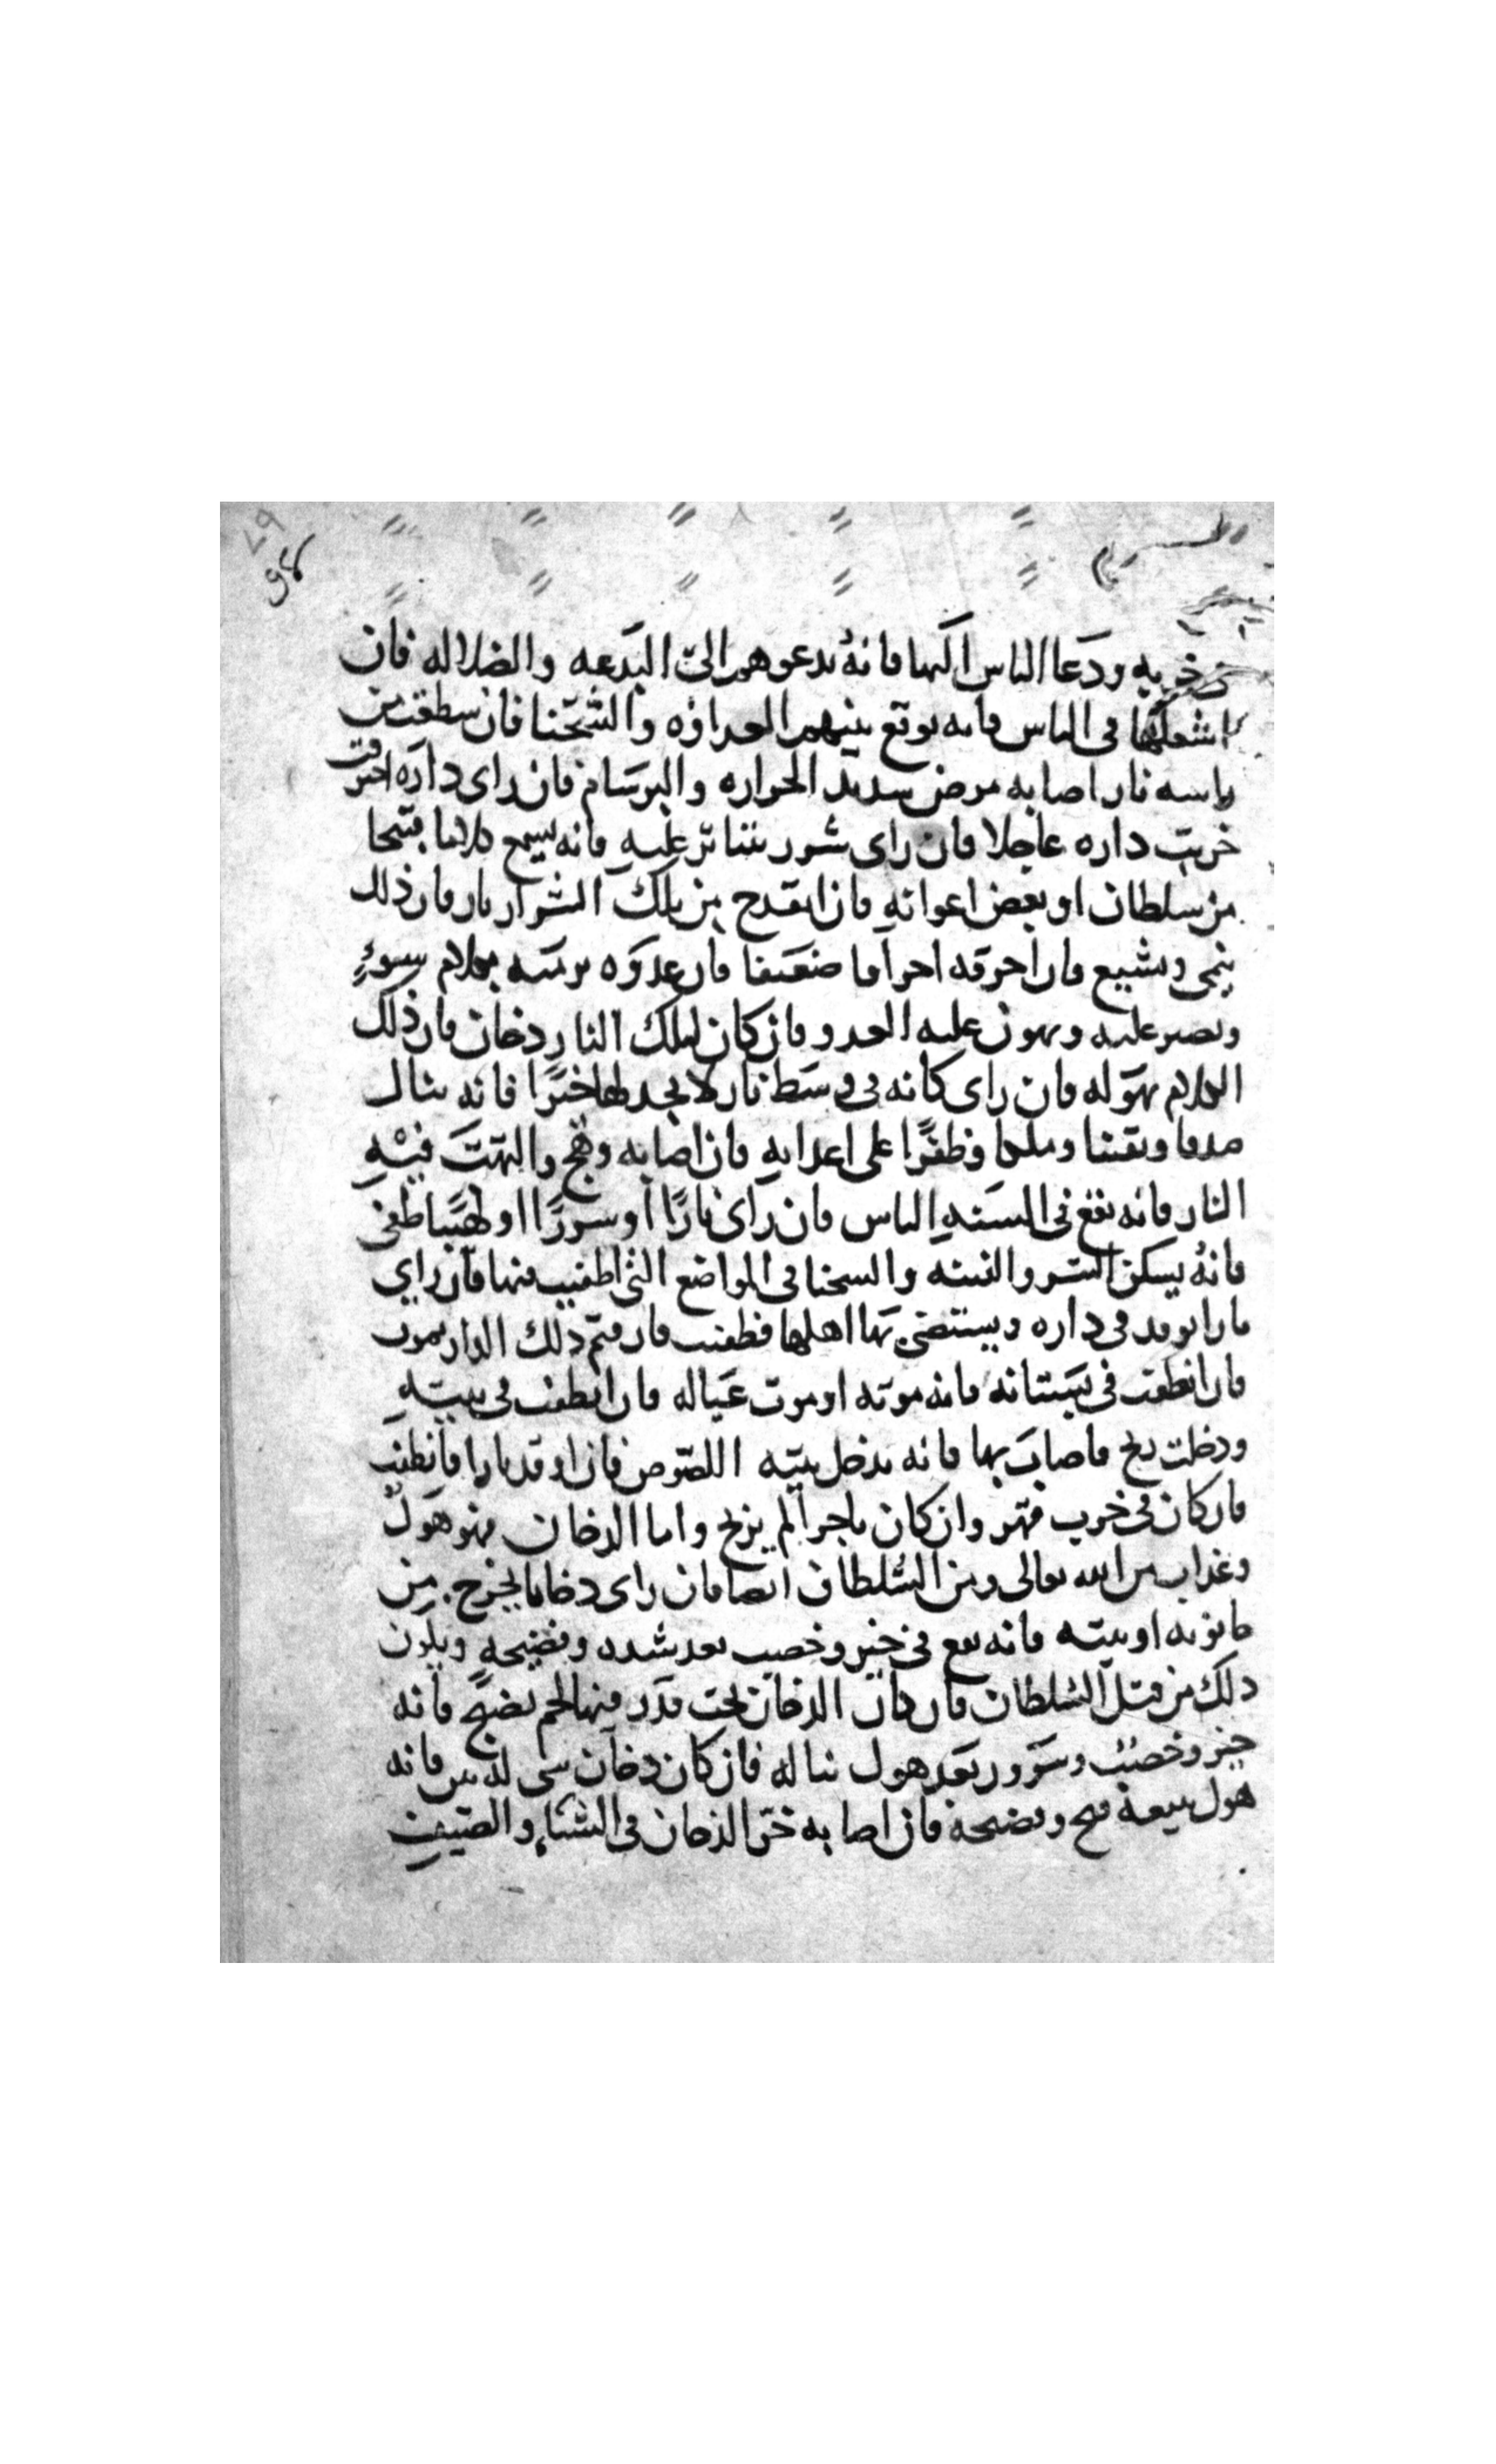 ودعا الناس اليها فانه يدعوهم الى البدعه والضلاله فان
اشعلها فى الناس فانه يوقع بينهم العداوه والشحنا فان سقطت من
راسه نار اصابه مرض شديد الحراره والبرسام فان راى داره احترقت
خربت داره عاجلا فان راى شرر يتناثر عليه فانه يسمع كلاما قبيحا
من سلطان او بعض اعوانه فان انقدح من تلك الشرار نار فان ذلك
ينمى ويشيع فان احرقه احراقا ضعيفا فان عدوه يرميه بكلام سوء
ويصبر عليه ويهون عليه العدو فان كان لتلك النار دخان فان ذلك
الكلام يهوله فان راى كانه فى وسط نار لا يجد لها حرا فانه ينال
صدقا ويقينا وملكا وظفرا على اعدايه فان اصابه وهج والتهبت فيه
النار فانه يقع فى السنه الناس فان راى نارا او شررا او لهبا طفى
فانه يسكن الشر والفتنه والشحنا فى المواضع التى اطفيت فيها فان راى
نارا توقد فى داره ويستضى بها اهلها فطفيت فان قيم ذلك الدار يموت
فان انطفت فى بستانه فانه موته او موت عياله فان انطفت فى بيته
ودخلت ريح فاصاب بها فانه يدخل بيته اللصوص فان اوقد نارا فانطفت
فان كان فى حرب قهر وان كان تاجرا لم يربح واما الدخان فهو هول
وعذاب من الله تعالى ومن السلطان ايضا فان راى دخانا يخرج من
حانوته او بيته فانه يقع فى خير وخصب بعد شده وفضيحه ويكون
ذلك من قبل السلطان فان كان الدخان تحت قدر فيها لحم نضيج فانه
خير وخصب وسرور بعد هول يناله فان كان دخان فانه
هول وفضيحه فان اصابه حر الدخان فى الشتاء والصيف